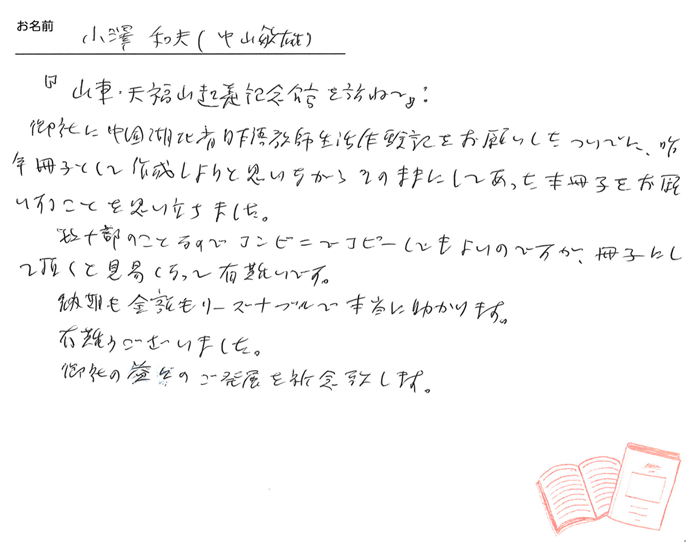 お名前 小澤 和夫(中山敏雄)
『山東・天福山起義記念館を訪ねて』:
御社に中国湖北省日本語教師生活体験記をお願いしたついでに、昨
年冊子として作成しようと思いながらそのままにしてあった本冊子をお願
いすることを思い立ちました。
数十部のことなのでコンビニでコピーしてもよいのですが、冊子にし
て頂くと見易くなって有難いです。
納期も金額もリーズナブルで本当に助かります。
有難うございました。
御社の益々のご発展を祈念致します。